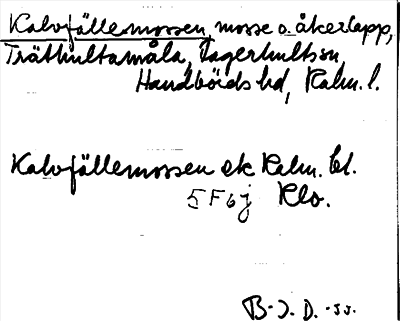 Kalvfällemossen, mosse o. åkerlapp,
Träthultamåla, Fagerhultssn,
Handbörds hd, Kalm. l.
Kalvfällemossen ek Kalm. bl.
5F6j Klo.
B-J. D. -55.